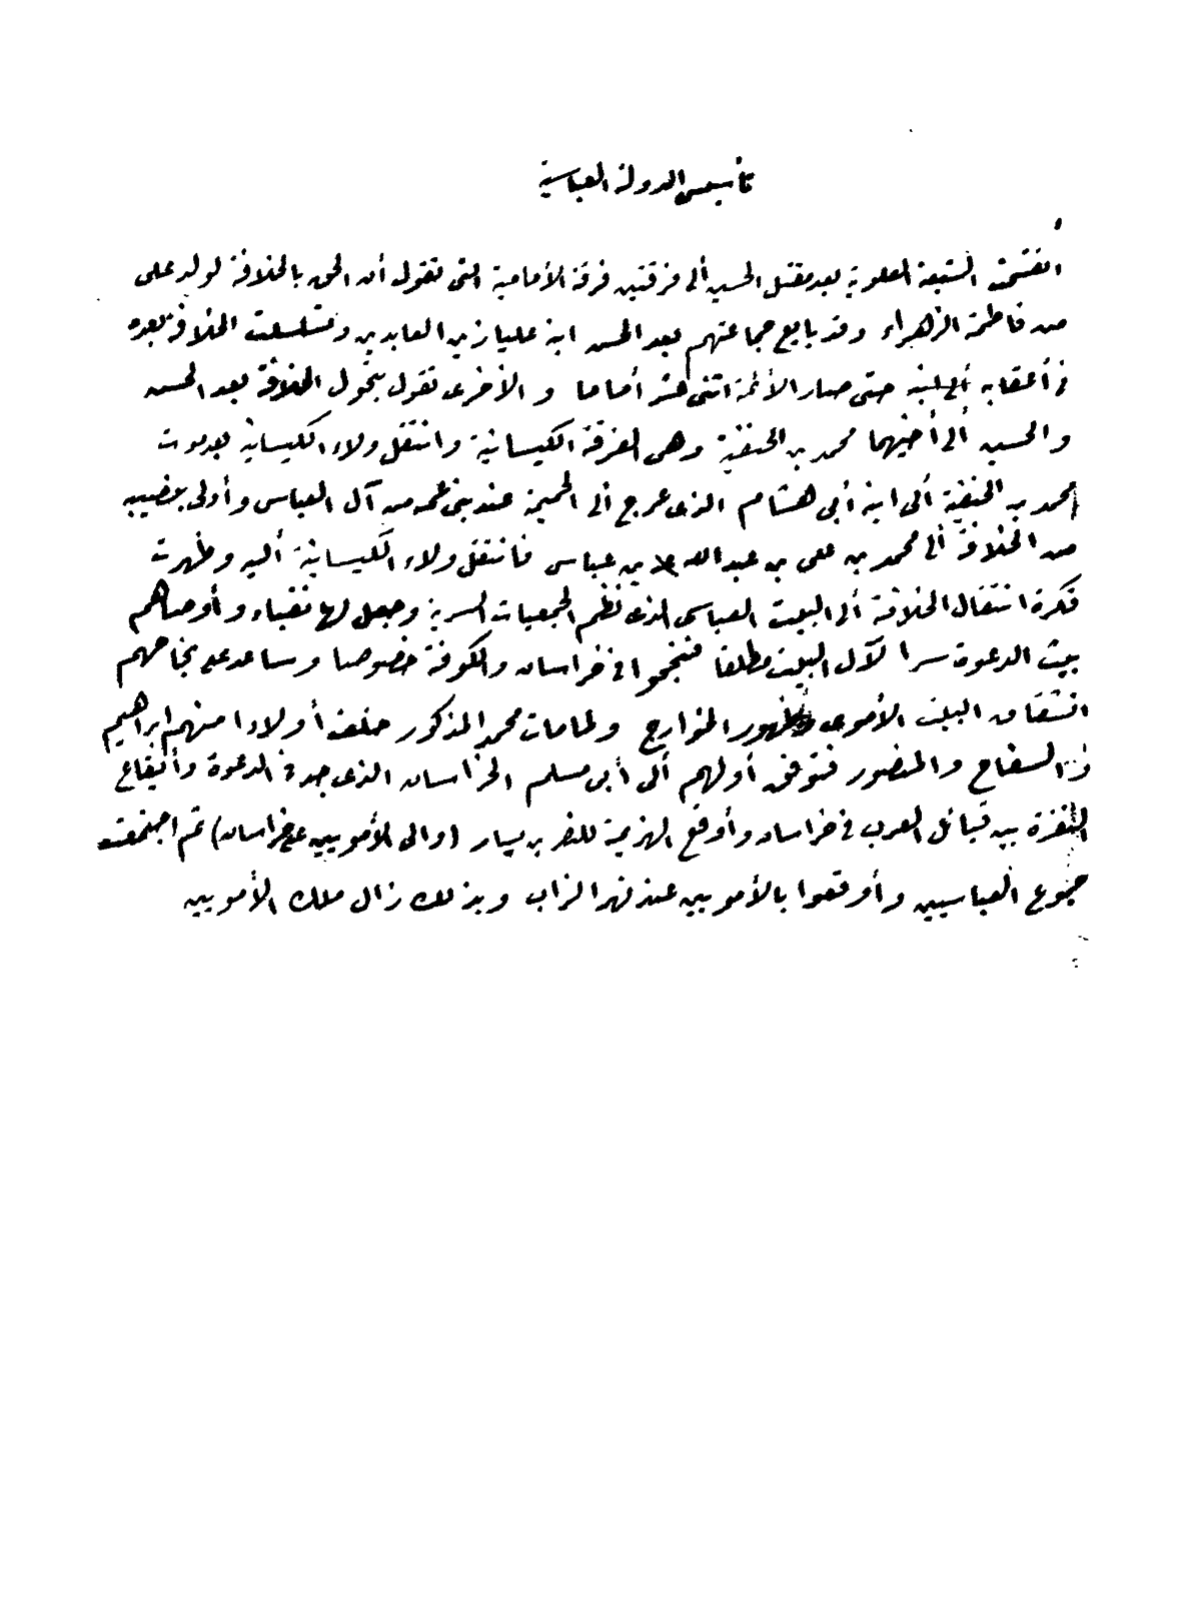 تأسيس الدولة العباسية
انقسمت الشيعة العلوية بعد مقتل الحسين ألى فرقتين فرقة الأمامية التى تقول أن الحق بالخلافة لولد على
من فاطمة الزهراء وقد بايع جماعتهم بعد الحسن ابنه عليا زين العابدين وتسلسلت الخلافة بعده
فى أعقابه حتى صار الأئمة اثنى عشر أماما و الأخرى تقول بتحول الخلافة بعد الحسن
والحسين ألى أخيهما محمد بن الحنفية وهى الفرقة الكيسانية وانتقل ولاء الكيسانية بعد موت
محمد بن الحنفية ألى ابنه أبى هشام الذى عرج ألى الحميمة عند بنى عمه من آل العباس وأولى بنصيبه
من الخلافة ألى محمد بن على بن عبد الله بن عباس فانتقل ولاء الكيسانية أليه وظهرت
فكرة انتقال الخلافة ألى البيت العباسى الذى نظم الجمعيات السرية وجعل لها نقباء وأوصاهم
ببث الدعوة سرا لآل البيت مطلقا فنجحوا فى خراسان والكوفة خصوصا وساعد على نجاحهم
انشقاق البيت الأموى وظهور الخوارج ولما مات محمد المذكور خلف أولادا منهم ابراهيم
والسفاح والمنصور فتوفق أولهم ألى أبى مسلم الخراسان الذى جد فى الدعوة وأيقاع
النفرة بين قبائل العرب فى خراسان وأوقع الهزيمة للنصر بن سيار (والى الأمويين على خراسان) ثم اجتمعت
جموع العباسيين وأوقعوا بالأمويين عند نهر الزاب وبذلك زال ملك الأمويين